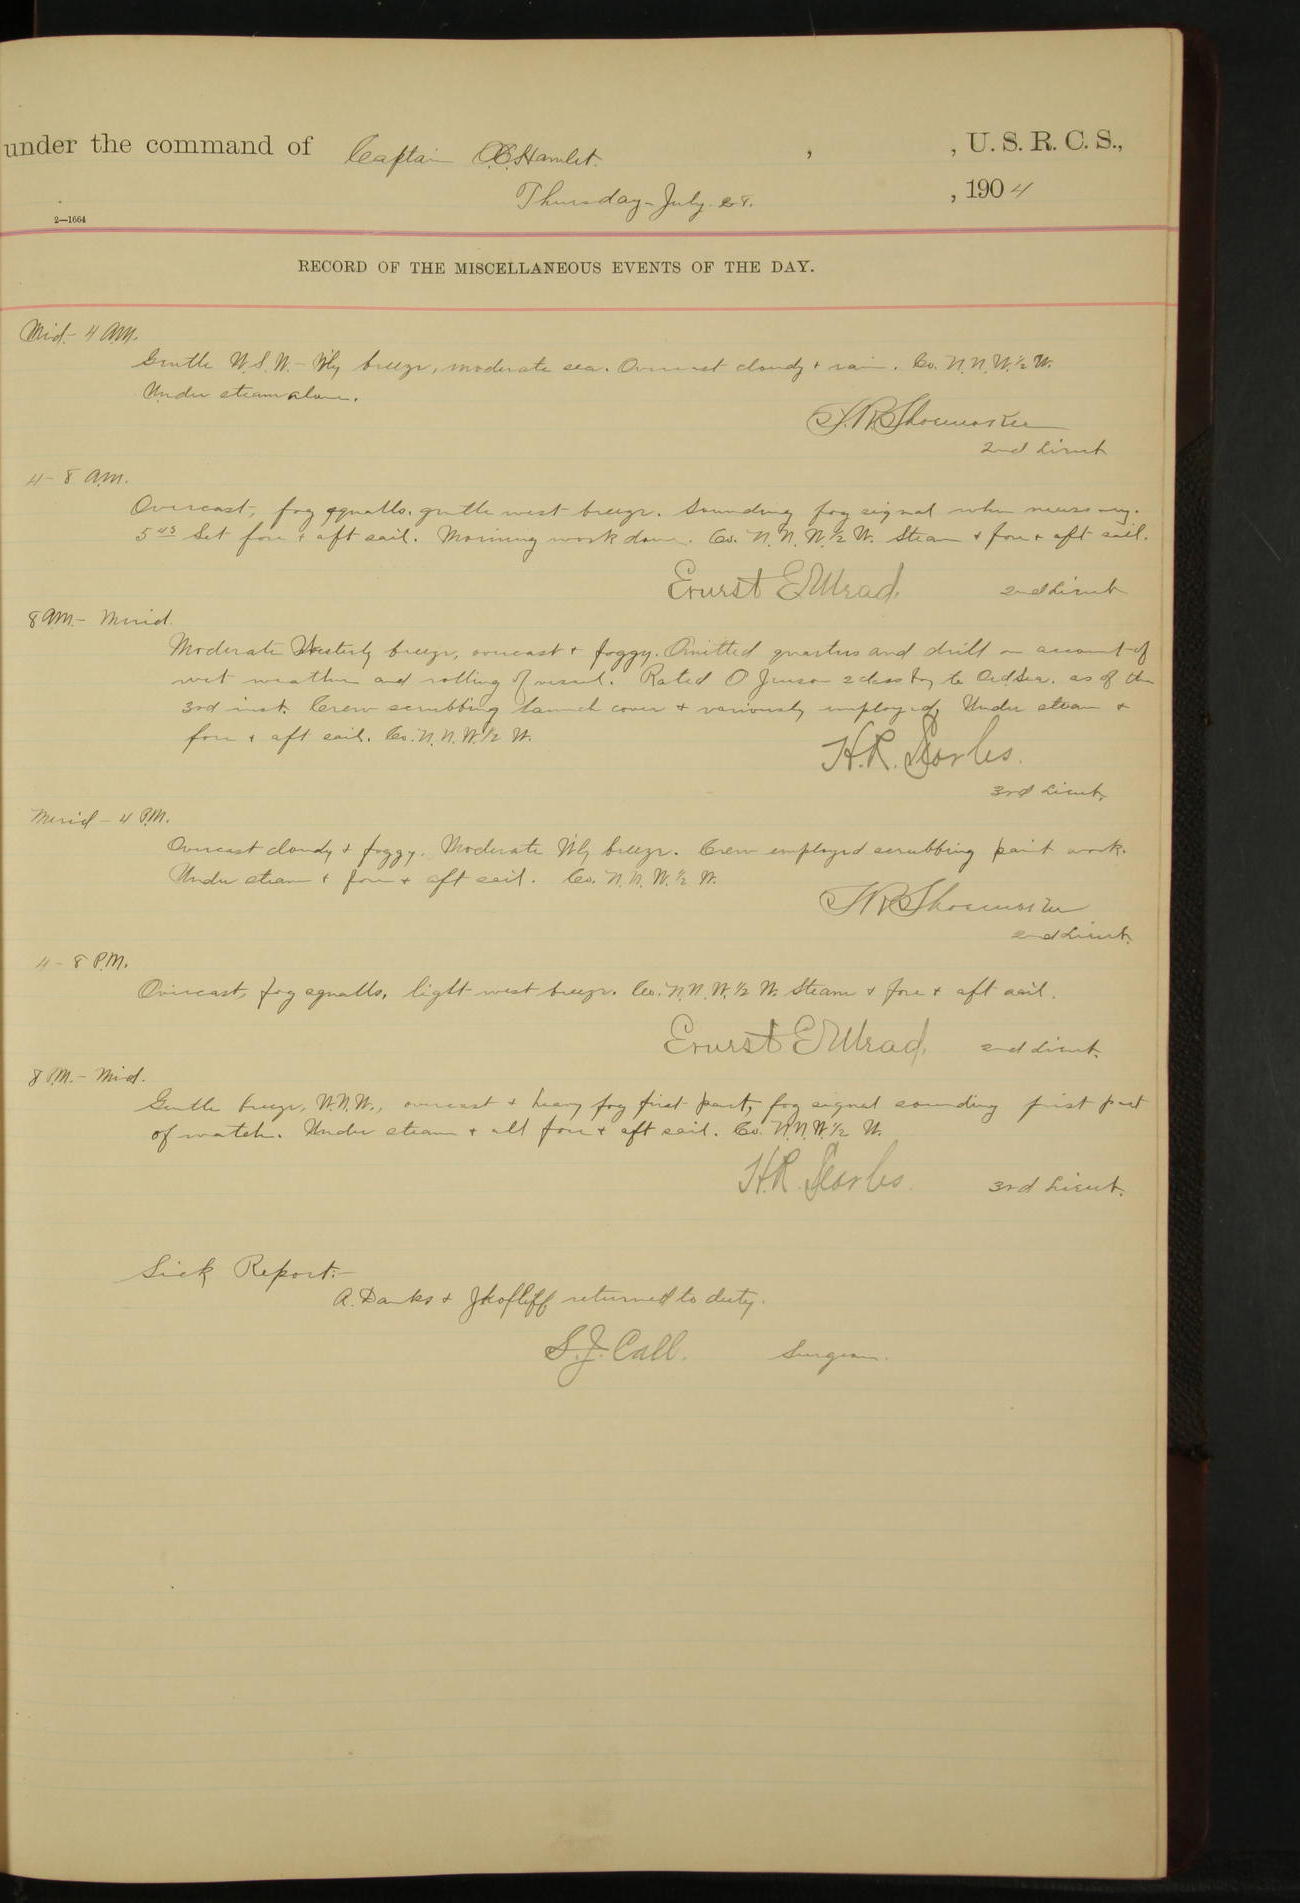 under the command of Captain O.C. Hamlet. , , U. S. R. C. S.,
Thursday - July 28. , 1904
2—1664
RECORD OF THE MISCELLANEOUS EVENTS OF THE DAY.
Mid - 4 AM.
Gentle W.S.W. - Wly breeze, moderate sea. Overcast cloudy + rain. Co. N.N.W.½ W.
Under steam alone.
F.R. Shoemaker
2nd Lieut
4 - 8 a.m.
Overcast, fog squalls. gentle west breeze. Sounding fog signal when necessary.
5 45 Set fore + aft sail. Morning work done. Co. N.N.W.½ W. Steam + fore + aft sail.
Ernest E. Mead. 2nd Lieut
8 AM. - Merid.
Moderate Westerly breeze, overcast + foggy. Omitted quarters and drill on account of
wet weather and rolling of vessel. Rated O Jenson 2 class boy to Ord Sea. as of the
3rd inst. Crew scrubbing launch cover + variously employed, Under steam +
fore + aft sail. Co. N.N.W.½ W.
H.R. Searles.
3rd Lieut.
Merid - 4 P.M.
Overcast cloudy + foggy. Moderate Wly breeze. Crew employed scrubbing paint work.
Under steam + fore + aft sail. Co. N.N.W.½ W.
F.R. Shoemaker
2nd Lieut.
4 - 8 P.M.
Overcast, fog squalls, light west breeze. Co. N.N.W.½ W. Steam + fore + aft sail.
Ernest E. Mead. 2nd Lieut.
8 P.M. - Mid.
Gentle breeze, W.N.W., overcast + heavy fog first part, fog signal sounding first part
of watch. Under steam + all fore + aft sail. Co. N.N.W.½ W.
H.R. Searles. 3rd Lieut.
Sick Report:-
A. Danks + returned to duty.
S.J. Call. Surgeon.